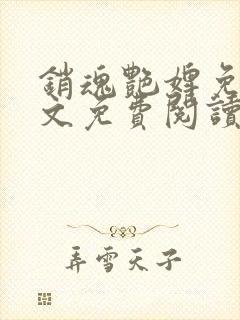 銷魂艷婢免
文免費閱讀
弄雪天子